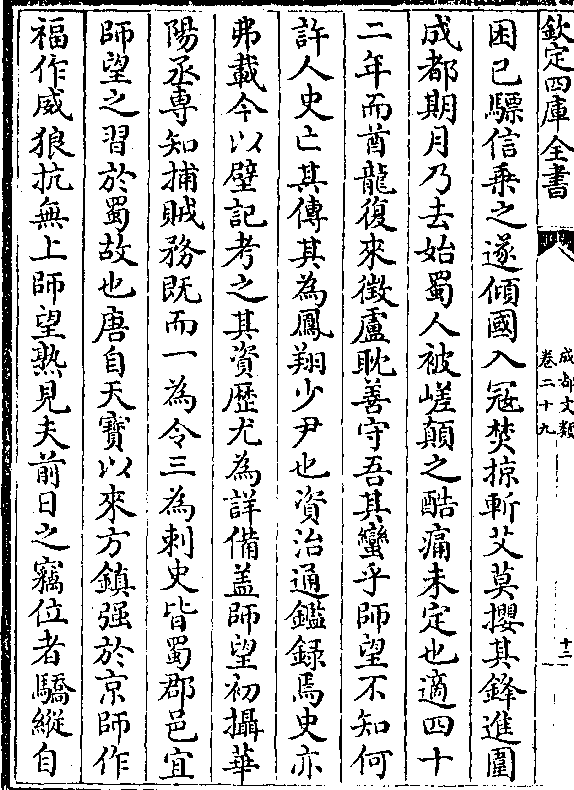 欽定四庫全書
成都文類
卷二十九
十二
困已驃信乗之遂傾國入冦焚掠斬艾莫攖其鋒進圍
成都期月乃去始蜀人被嵯顛之酷痛未定也適四十
二年而酋龍復來微盧耽善守吾其蠻乎師望不知何
許人史亡其傳其為鳳翔少尹也資治通鑑録焉史亦
弗載今以壁記考之其資歴尤為詳備盖師望初攝華
陽丞専知捕賊務既而一為令三為刺史皆蜀郡邑宜
師望之習於蜀故也唐自天寶以來方鎮强於京師作
福作威狼抗無上師望熟見夫前日之竊位者驕縱自